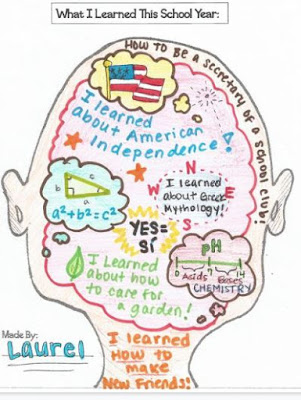 What I Learned This School Year:
HOW TO BE A SECRETARY OF A SCHOOL CLUB!
I learned
about American
Independence!
N
W
E
S
I learned
about Greek
Mythology!
a
b
c
a²+b²=c²
YES=
SÍ
pH
0
14
Acids
Bases
CHEMISTRY
I Learned
about how
to care for
a garden!
Made By:
Laurel
I learned
HOW to
make
New Friends!